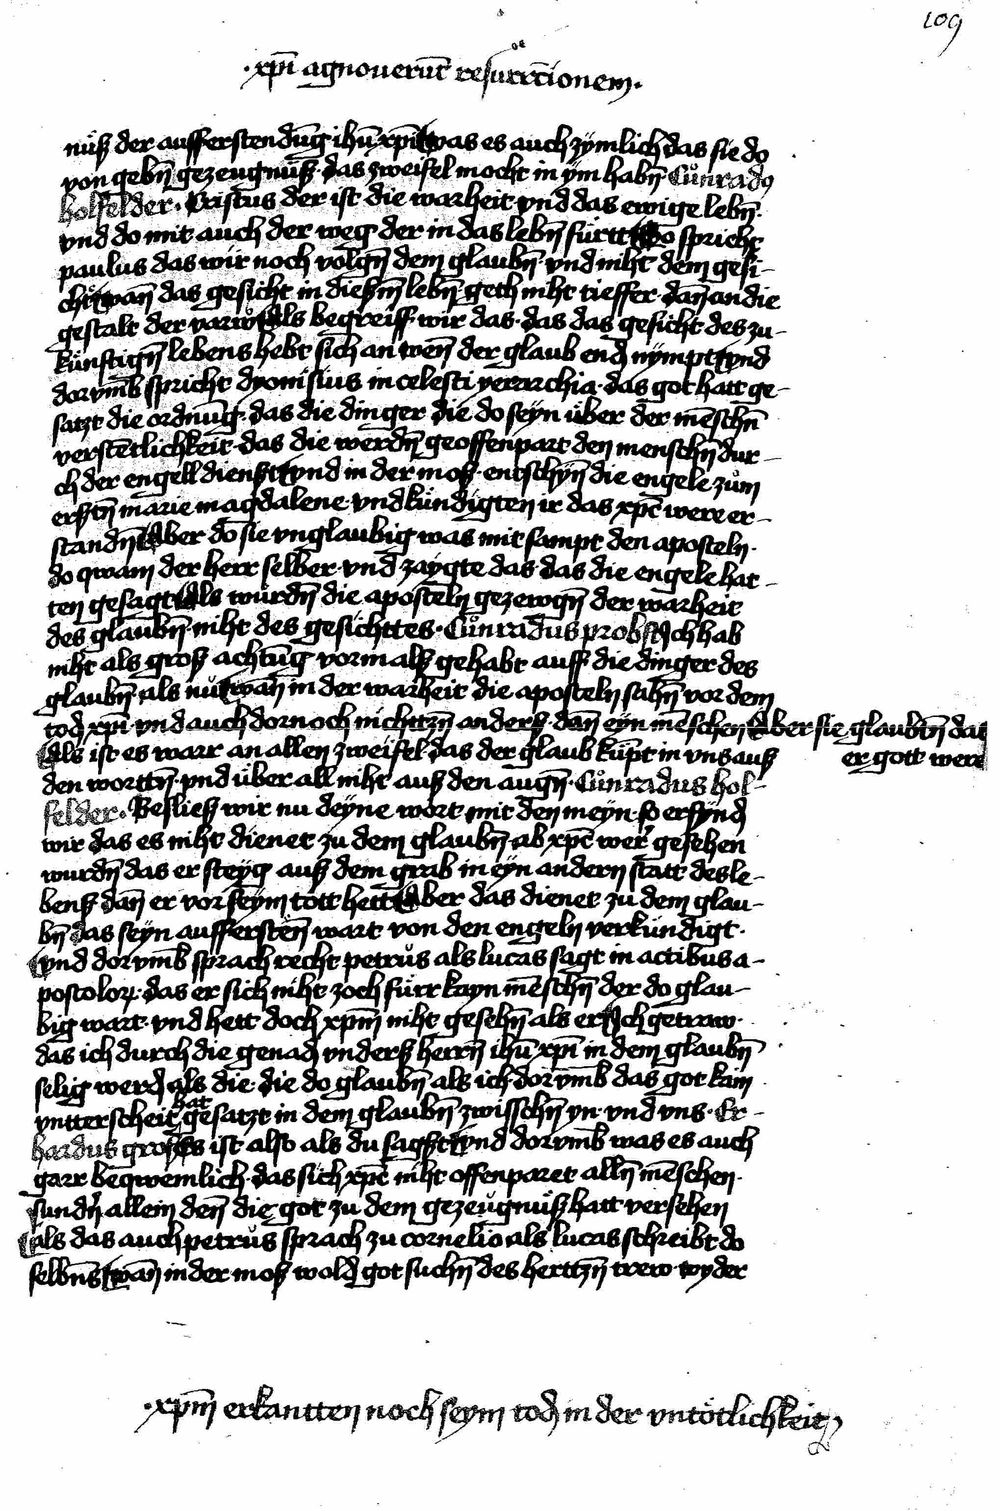 109
·xp̄i agnoverūt resurrc̄ionem·
nüß der aufferstendūg ihū xp̄i was es auch zymlich das sie do
von gebn̄ gezeugnüß· das zweifel mocht in ym habn̄ Cůnradꝯ
holfelder· Cristus der ist die warheit vnd das ewige lebn̄·
vnd do mit auch der weg der in das lebn̄ fürtt So spricht
paulus das wir noch volgn̄ dem glaubn̄ vnd niht dem gesi-
cht wan̄ das gesicht in dießm̄ lebn̄ geth niht tieffer dan̄ an die
gestalt der varw Als begreiff wir das· das das gesicht des zu-
künftign̄ lebens hebt sich an wen̄ der glaub end nympt vnd
dorvm̄b spricht dyonisius in celesti yerarchia· das got hatt ge-
satzt die ordnūg· das die dinger die do seyn über der mēschn̄
verstētlichkeit· das die werdn̄ geoffenpart den menschn̄ dur-
ch der engell dienst vnd in der moß· entschyn die engele zům
erstn̄ marie magdalene vnd kündigten ir das xp̄c were er-
standn̄ Aber do sie vnglaubig was mit sampt den aposteln·
do qwam der herr selber· vnd zaygte das· das die engele hat-
ten gesagt Als würdn̄ die aposteln gezewgn̄ der warheit
des glaubn̄ niht des gesichttes· Cůnradus probst Ich hab
niht als groß achtūg vormalß gehabt auff die dinger des
glaubn̄ als nů wan̄ in der warheit die aposteln sahn̄ vor dem
tod xp̄i· vnd auch dornoch nichttzn̄ anderß· dan̄ eyn mēschen Aber sie glaubtn̄ das
er gott were
Als ist es warr an allen zweifel das der glaub küpt in vns auß
den worttn̄· vnd über all niht auß den augn̄· Cůnradus hol-
felder· Besließ wir nu deyne wort mit den meyn· so erfynd
wir das es niht dienet zu dem glaubn̄· ab xp̄c wer gesehen
wurdn̄ das er steyg auß dem grab in eyn andern statt des le-
benß dan̄ er vor seym tott hett Aber das dienet zu dem glau-
bn̄ das seyn auffersten̄ wart von den engeln verkündigt·
vnd dorvm̄b sprach recht petrůs als lucas sagt in actibus a-
postoloꝝ· das er sich niht zoch fürr kayn mēschn̄ der do glau-
big wart· vnd hett doch xpm̄ niht gesehn̄ als er Ich getraw·
das ich durch die genad vnderß herrn̄ ihū xp̄i in dem glaubn̄
selig werd als die· die do glaubn̄ als ich· dorvm̄b das got kain
vntterscheit hat gesatzt in dem glaubn̄ zwisschn̄ yn· vnd vns· Er-
hardus groß Es ist also als du sagst vnd dorvm̄b was es auch
garr beqwemlich· das sich xp̄c niht offenparet alln̄ mēschen·
sundn̄ allein den̄ die got zu dem gezeůgnüß hatt versehen
als das auch petrůs sprach zu cornelio als lucas schreibt do
selbn̄s wan̄ in der moß wold got suchn̄ des herttzn̄ trew· wyder
·xpm̄ erkantten noch seym tod in der vntötlichkeit